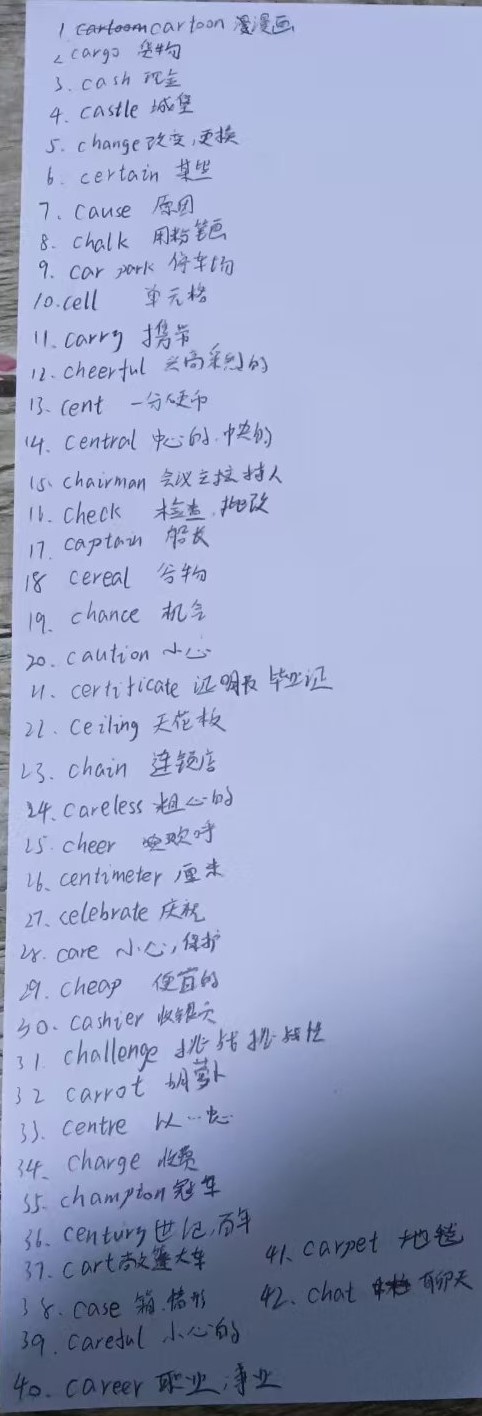 1. cartoon 漫画
2. cargo 货物
3. cash 现金
4. castle 城堡
5. change 改变,更换
6. certain 某些
7. cause 原因
8. chalk 用粉笔画
9. car park 停车场
10. cell 单元格
11. carry 携带
12. cheerful 兴高采烈的
13. cent 一分硬币
14. central 中心的,中央的
15. chairman 会议主持人
16. check 检查,批改
17. captain 船长
18 cereal 谷物
19. chance 机会
20. caution 小心
21. certificate 证明 毕业证
22. ceiling 天花板
23. chain 连锁店
24. careless 粗心的
25. cheer 欢呼
26. centimeter 厘米
27. celebrate 庆祝
28. care 小心,保护
29. cheap 便宜的
30. cashier 收银员
31. challenge 挑战 挑战性
32 carrot 胡萝卜
33. centre 以…中心
34. charge 收费
35. champton 冠军
36. century 世纪,百年
37. cart 篷大车
38. case 箱,情形
39. careful 小心的
40. career 职业,事业
41. carpet 地毯
42. chat 聊天